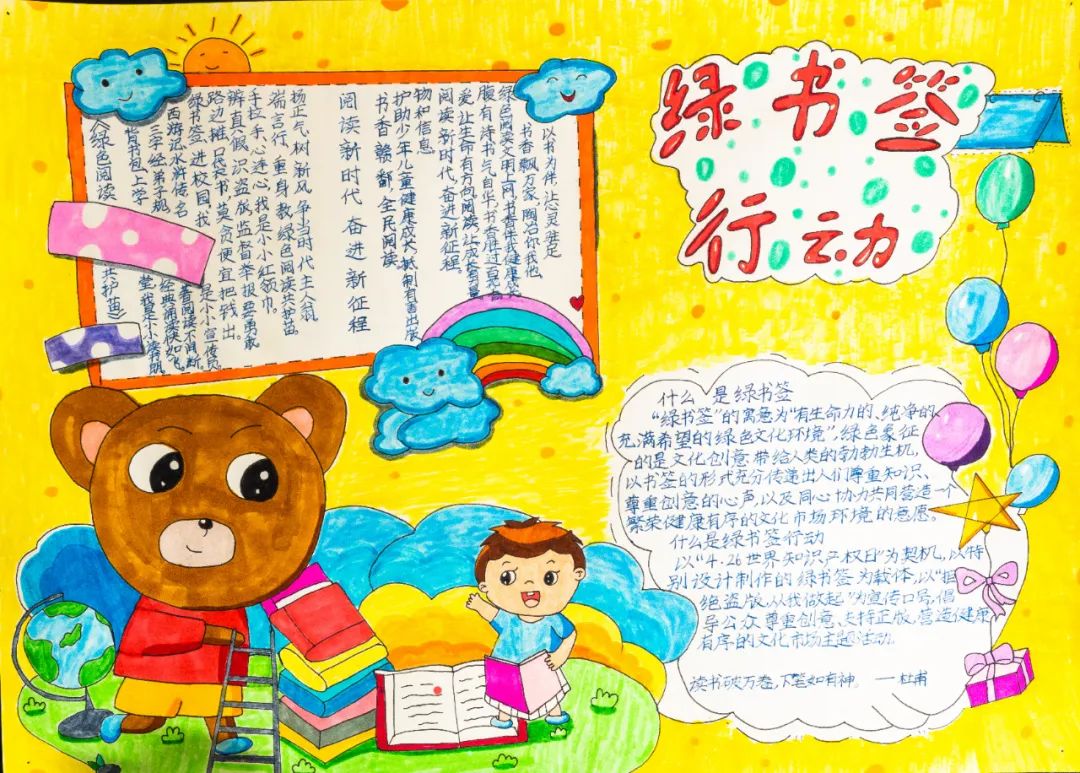 绿书签
行动
《绿色阅读 共护苗》
背书包,上学堂,我是小小读书郎。
三字经,弟子规,经典诵读快如飞。
西游记,水浒传,名著阅读不间断。
绿书签,进校园,我是小小宣传员。
路边摊,口袋书,莫贪便宜把钱出。
辨真假,识盗版,监督举报要勇敢
手拉手,心连心,我是小小红领巾。
湍言行,重身教,绿色阅读共护苗。
扬正气,树新风,争当时代主人翁
阅读新时代 奋进新征程
书香赣鄱 全民阅读
护助少年儿童健康成长,抵制有害出版
物和信息
阅读新时代,奋进新征程。
爱,让生命有方向,阅读,让成长有力量
腹有诗书气自华,书香胜过百花香
绿色阅读文明上网,书香伴我健康成长
书香飘万家,陶冶你我他,
以书为伴,让心灵
什么是绿书签
“绿书签”的寓意为“有生命力的、纯净的、
充满希望的绿色文化环境”,绿色象征
的是文化创意带给人类的勃勃生机,
以书签的形式充分传递出人们尊重知识、
尊重创意的心声,以及同心协力共同营造一个
繁荣健康有序的文化市场环境的意愿。
什么是绿书签行动
以“4.26世界知识产权日”为契机,以特
别设计制作的绿书签为载体,以“拒
绝盗版,从我做起”为宣传口号,倡
导公众尊重创意、支持正版,营造健康
有序的文化市场主题活动。
读书破万卷,下笔如有神。——杜甫